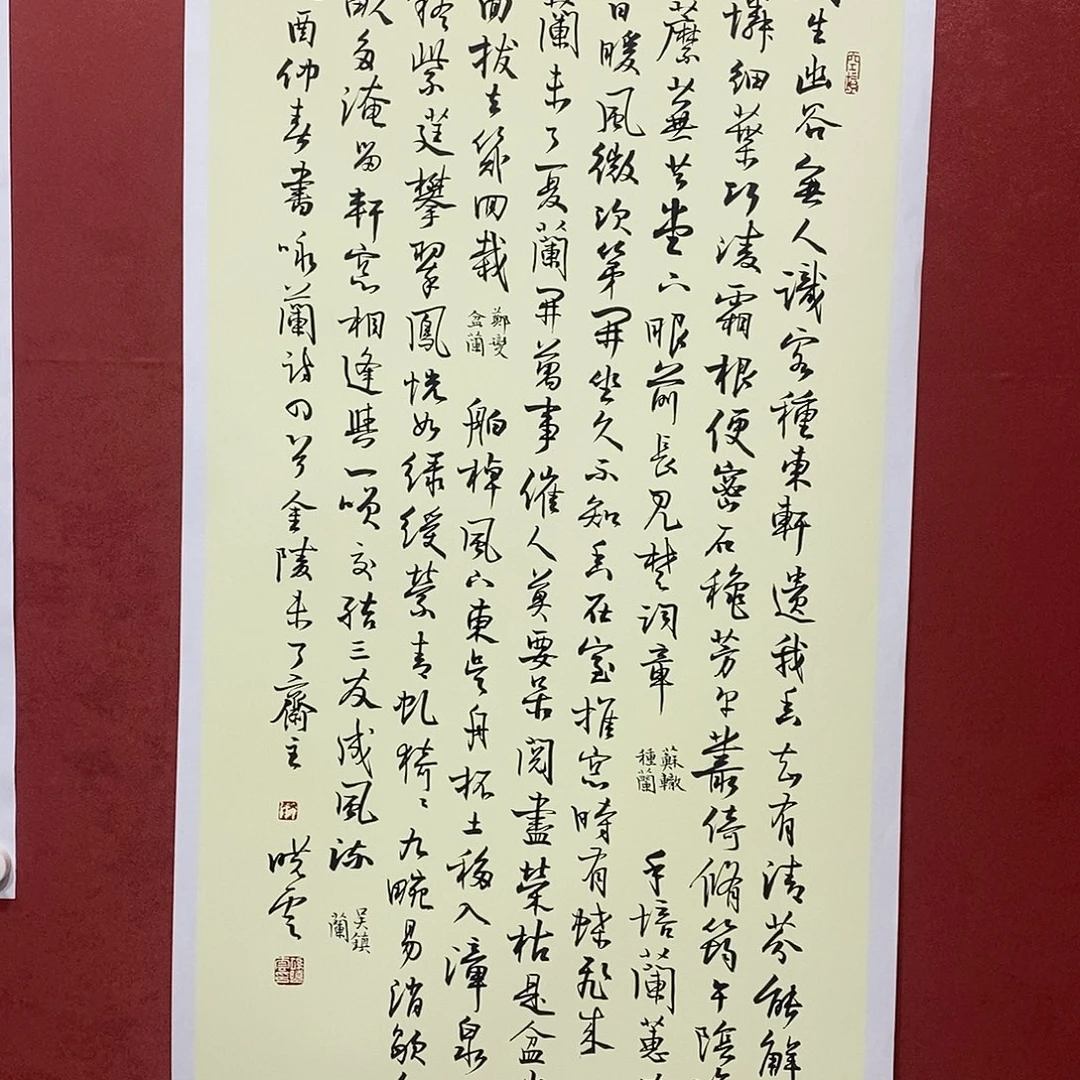 生幽谷無人識客種東軒遺我香知有清芬能解
憐細葉巧凌霜根便密石穐芳早叢倚脩筠午蔭
蘼蕪共堂下眼前長見楚詞章 蘇轍種蘭 手培蘭蕙
日暖風微次第開坐久不知香在室推窓時有蝶飛來
蘭未了夏蘭開萬事催人莫要呆閱盡榮枯是盆
回拔去幾回栽 鄭燮盆蘭 舶棹風下東吳舟抔土移入漳泉
紫莛攀翠鳳恍如綠綬縈青虬猗猗九畹易消歇
畝多淹留軒窓相逢與一笑交結三友成風流 吳鎮蘭
酉仲春書咏蘭詩四首金陵未了齋主
曉雲